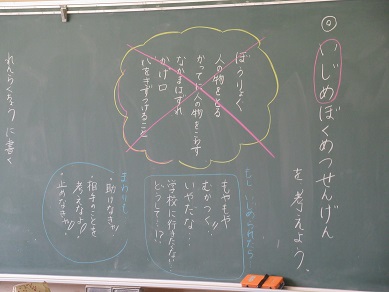 ◎いじめぼくめつせんげん
を考えよう。
ぼうりょく
人の物をとる
かってに人の物をこわす
なかまはずれ
かげ口
心をきずつけること
もし、いじめられたら
もやもや
むかつく!!
いやだな…
学校に行きたくない…
どうして…!?
まわりも
・助けなきゃ!!
・相手のことを
考えなよ!!
・止めなきゃ!!
れんらくちょうに書く